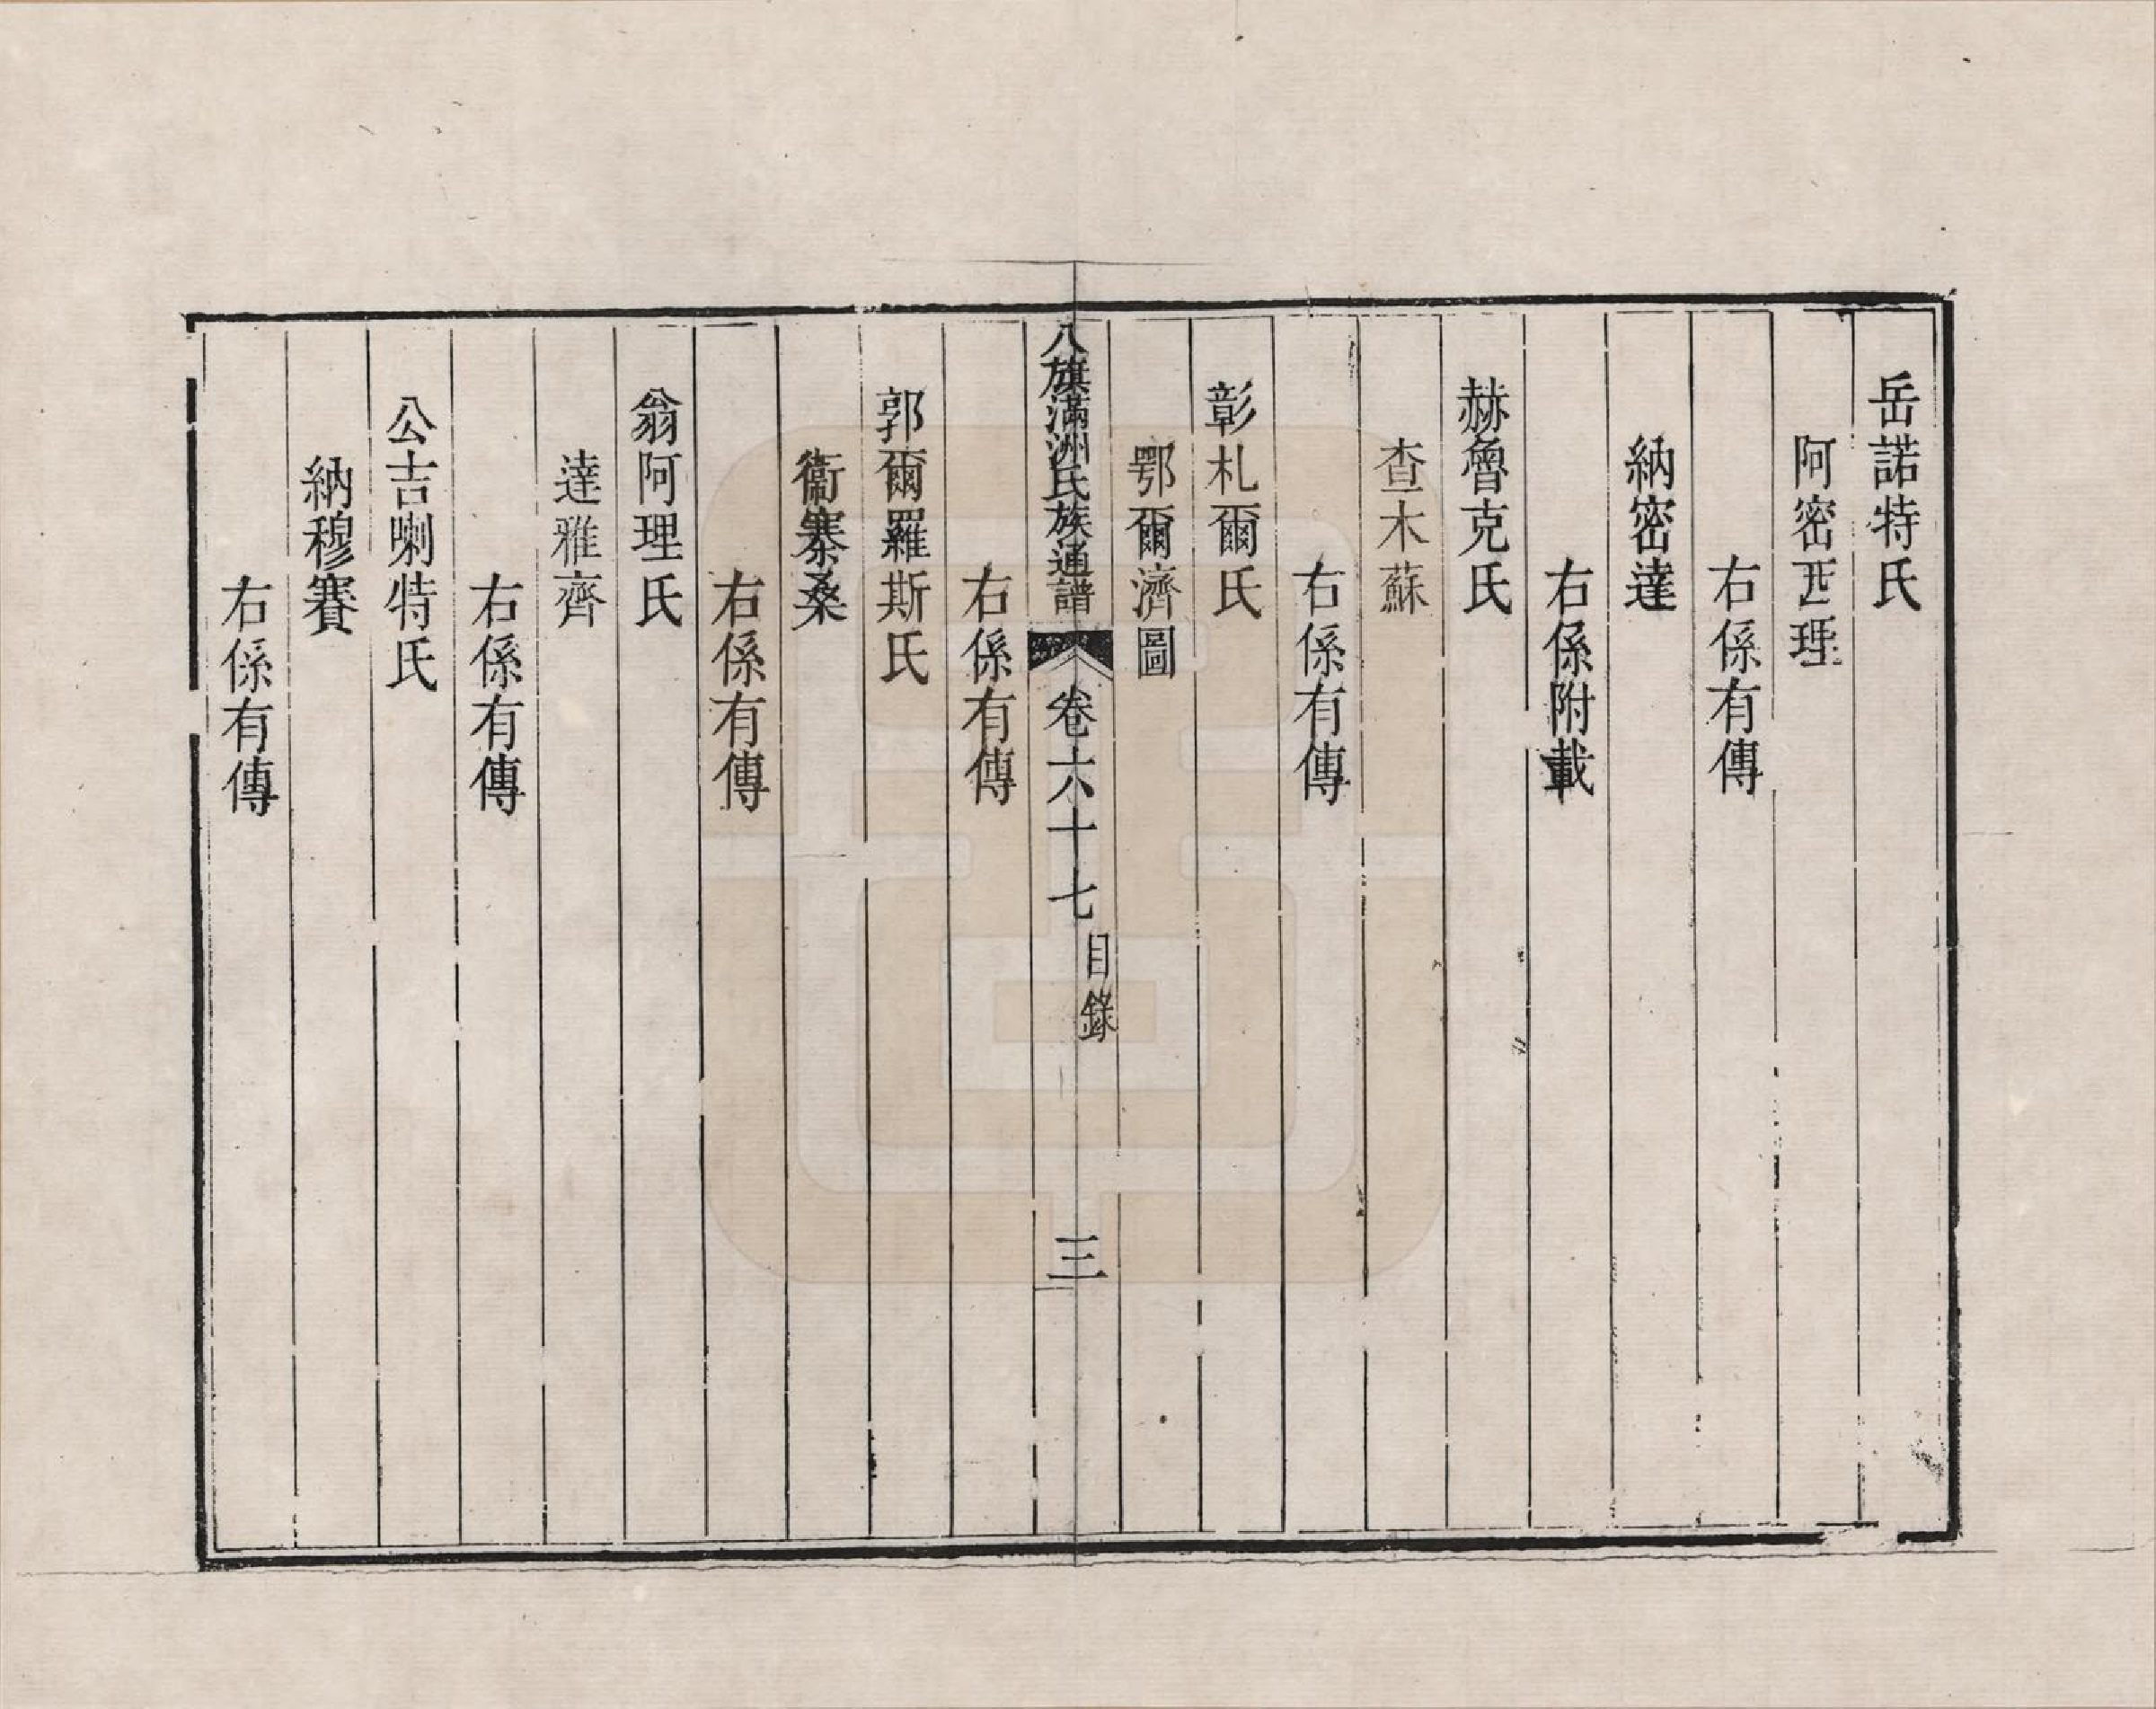 岳諾特氏
阿密丕理
右係有傳
納密達
右係附載
赫魯克氏
查木蘇
右係有傳
彰札爾氏
鄂爾濟圖
八旗滿洲氏族通譜
卷六十七
目錄
三
右係有傳
郭爾羅斯氏
衞寨桑
右係有傳
翁阿理氏
達雅齊
右係有傳
公吉喇特氏
納穆賽
右係有傳